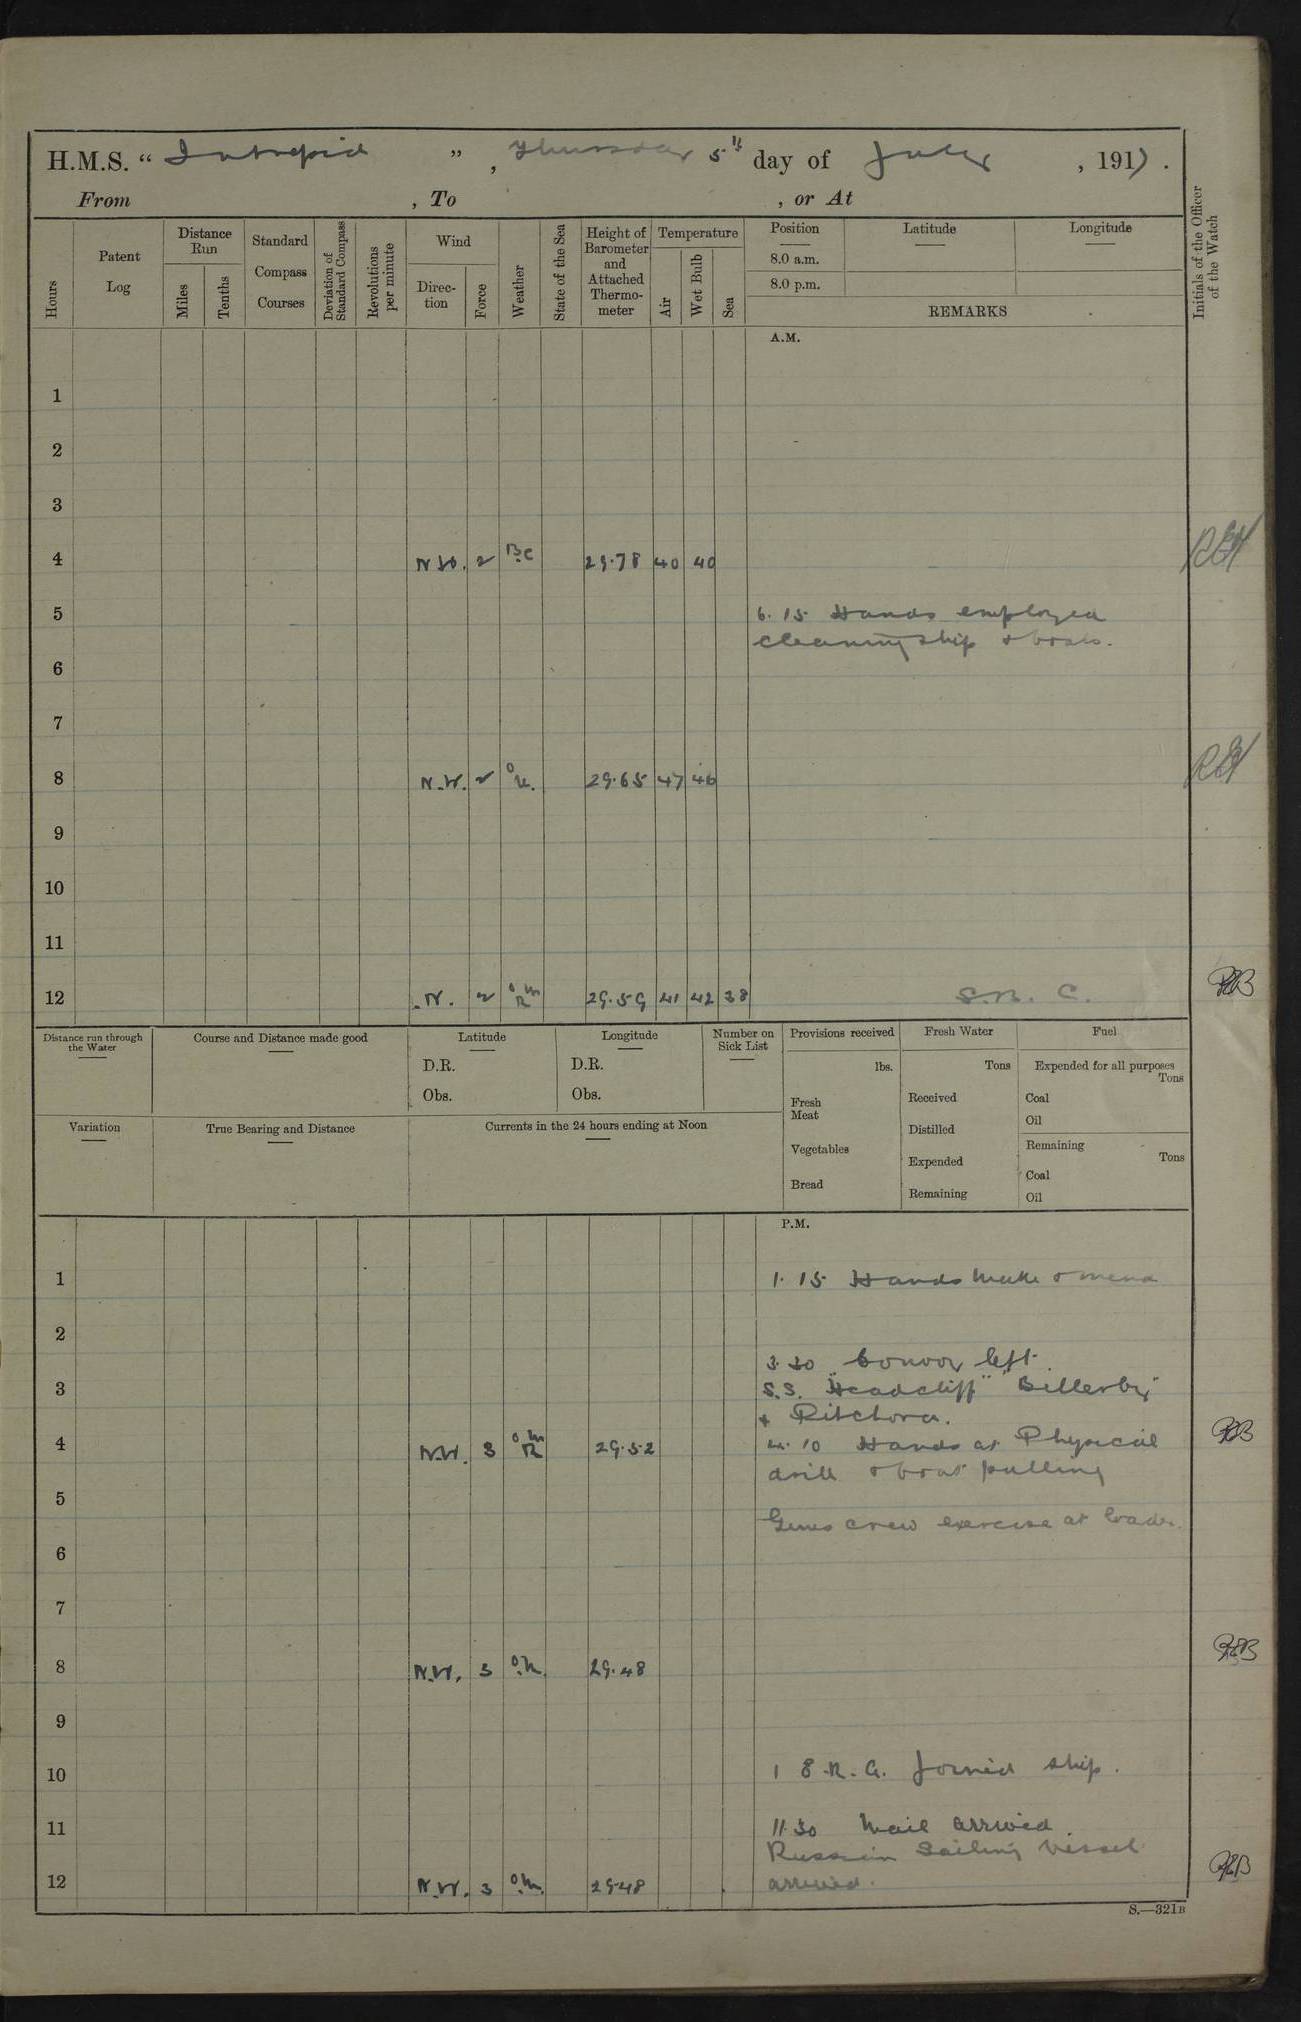 H.M.S. “ Intrepid ” , Thursday 5th day of July , 1917 .
From , To , or At
Hours
Patent Log
Distance Run
Miles
Tenths
Standard Compass Courses
Deviation of Standard Compass
Revolutions per minute
Wind
Direc-tion
Force
Weather
State of the Sea
Height of Barometer and Attached Thermo-meter
Temperature
Air
Wet Bulb
Sea
Position
8.0 a.m.
8.0 p.m.
Latitude
Longitude
REMARKS
Initials of the Officer of the Watch
A.M.
1
2
3
4 N.W. 2 B.C 29.78 40 40
5 6.15 Hands employed
cleaning ship & boats.
6
7
8 N.W. 2 29.65 47 46
9
10
11
12 N. 2 O M R 29.59 41 42 38 S.N.C.
Distance run through the Water
Course and Distance made good
Latitude
D.R.
Obs.
Longitude
D.R.
Obs.
Number on Sick List
Provisions received
lbs.
Fresh Meat
Vegetables
Bread
Fresh Water
Tons
Received
Distilled
Expended
Remaining
Fuel
Expended for all purposes
Tons
Coal
Oil
Remaining
Tons
Coal
Oil
Variation
True Bearing and Distance
Currents in the 24 hours ending at Noon
P.M.
1 1.15 Hands make & mend
2
3.30 Convoy left.
3 S.S. "Headcliff" "Bellerby"
&
4 N.W. 3 O M R 29.52 4.10 Hands at Physical
drill & boat pulling
5
Guns crew exercise at loader.
6
7
8 N.W. 3 O.M. 29.48
9
10 1 8 joined ship.
11 11.30 Mail arrived.
Russian Sailing Vessel
12 N.W. 3 O.M. 29.48 arrived.
S.—321B